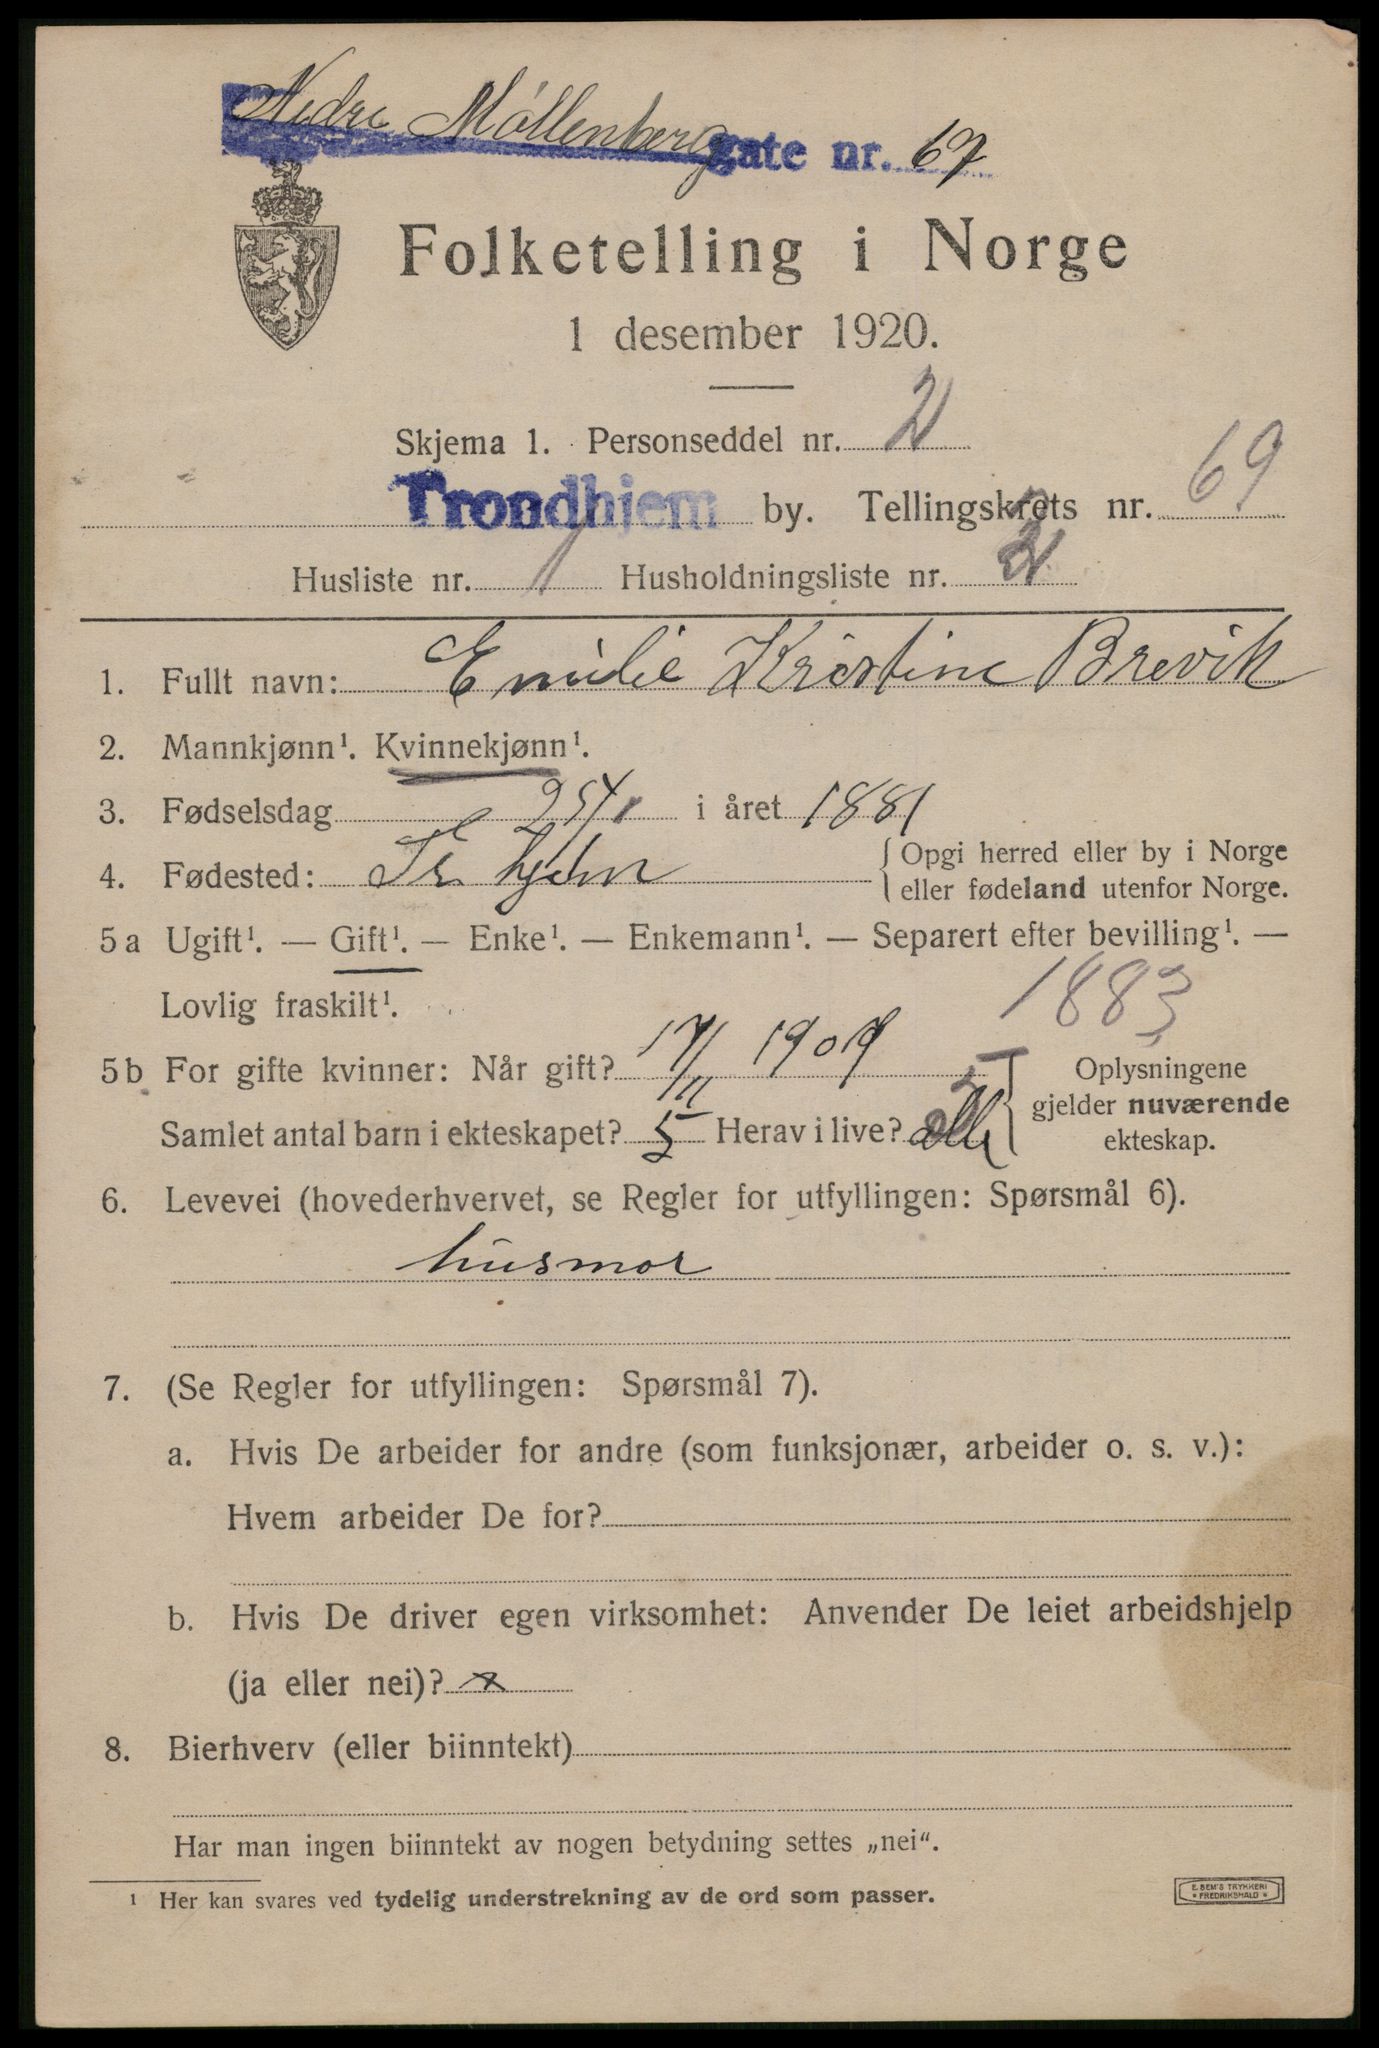 Nedre Möllenberg gate nr. 67
Folketelling i Norge
1 desember 1920.
Skjema 1. Personseddel nr. 2
Trondhjem by. Tellingskrets nr. 69
Husliste nr. 1 Husholdningsliste nr. 2
1. Fullt navn: Emilie Kristine Brevik
2. Mannkjønn¹. Kvinnekjønn¹.
3. Fødselsdag 25/1 i året 1881
4. Fødested: Tr. hjem { Opgi herred eller by i Norge
eller fødeland utenfor Norge.
5 a Ugift¹. — Gift¹. — Enke¹. — Enkemann¹. — Separert efter bevilling¹. —
Lovlig fraskilt¹.
1883
5 b For gifte kvinner: Når gift? 17/11 1907
Samlet antal barn i ekteskapet? 5 Herav i live? alle
Oplysningene
gjelder nuværende
ekteskap.
6. Levevei (hovederhvervet, se Regler for utfyllingen: Spørsmål 6).
husmor
7. (Se Regler for utfyllingen: Spørsmål 7).
a. Hvis De arbeider for andre (som funksjonær, arbeider o. s. v.):
Hvem arbeider De for?
b. Hvis De driver egen virksomhet: Anvender De leiet arbeidshjelp
(ja eller nei)? x
8. Bierhverv (eller biinntekt)
Har man ingen biinntekt av nogen betydning settes „nei“.
¹ Her kan svares ved tydelig understrekning av de ord som passer.
E. SEM'S TRYKKERI
* FREDRIKSHALD *